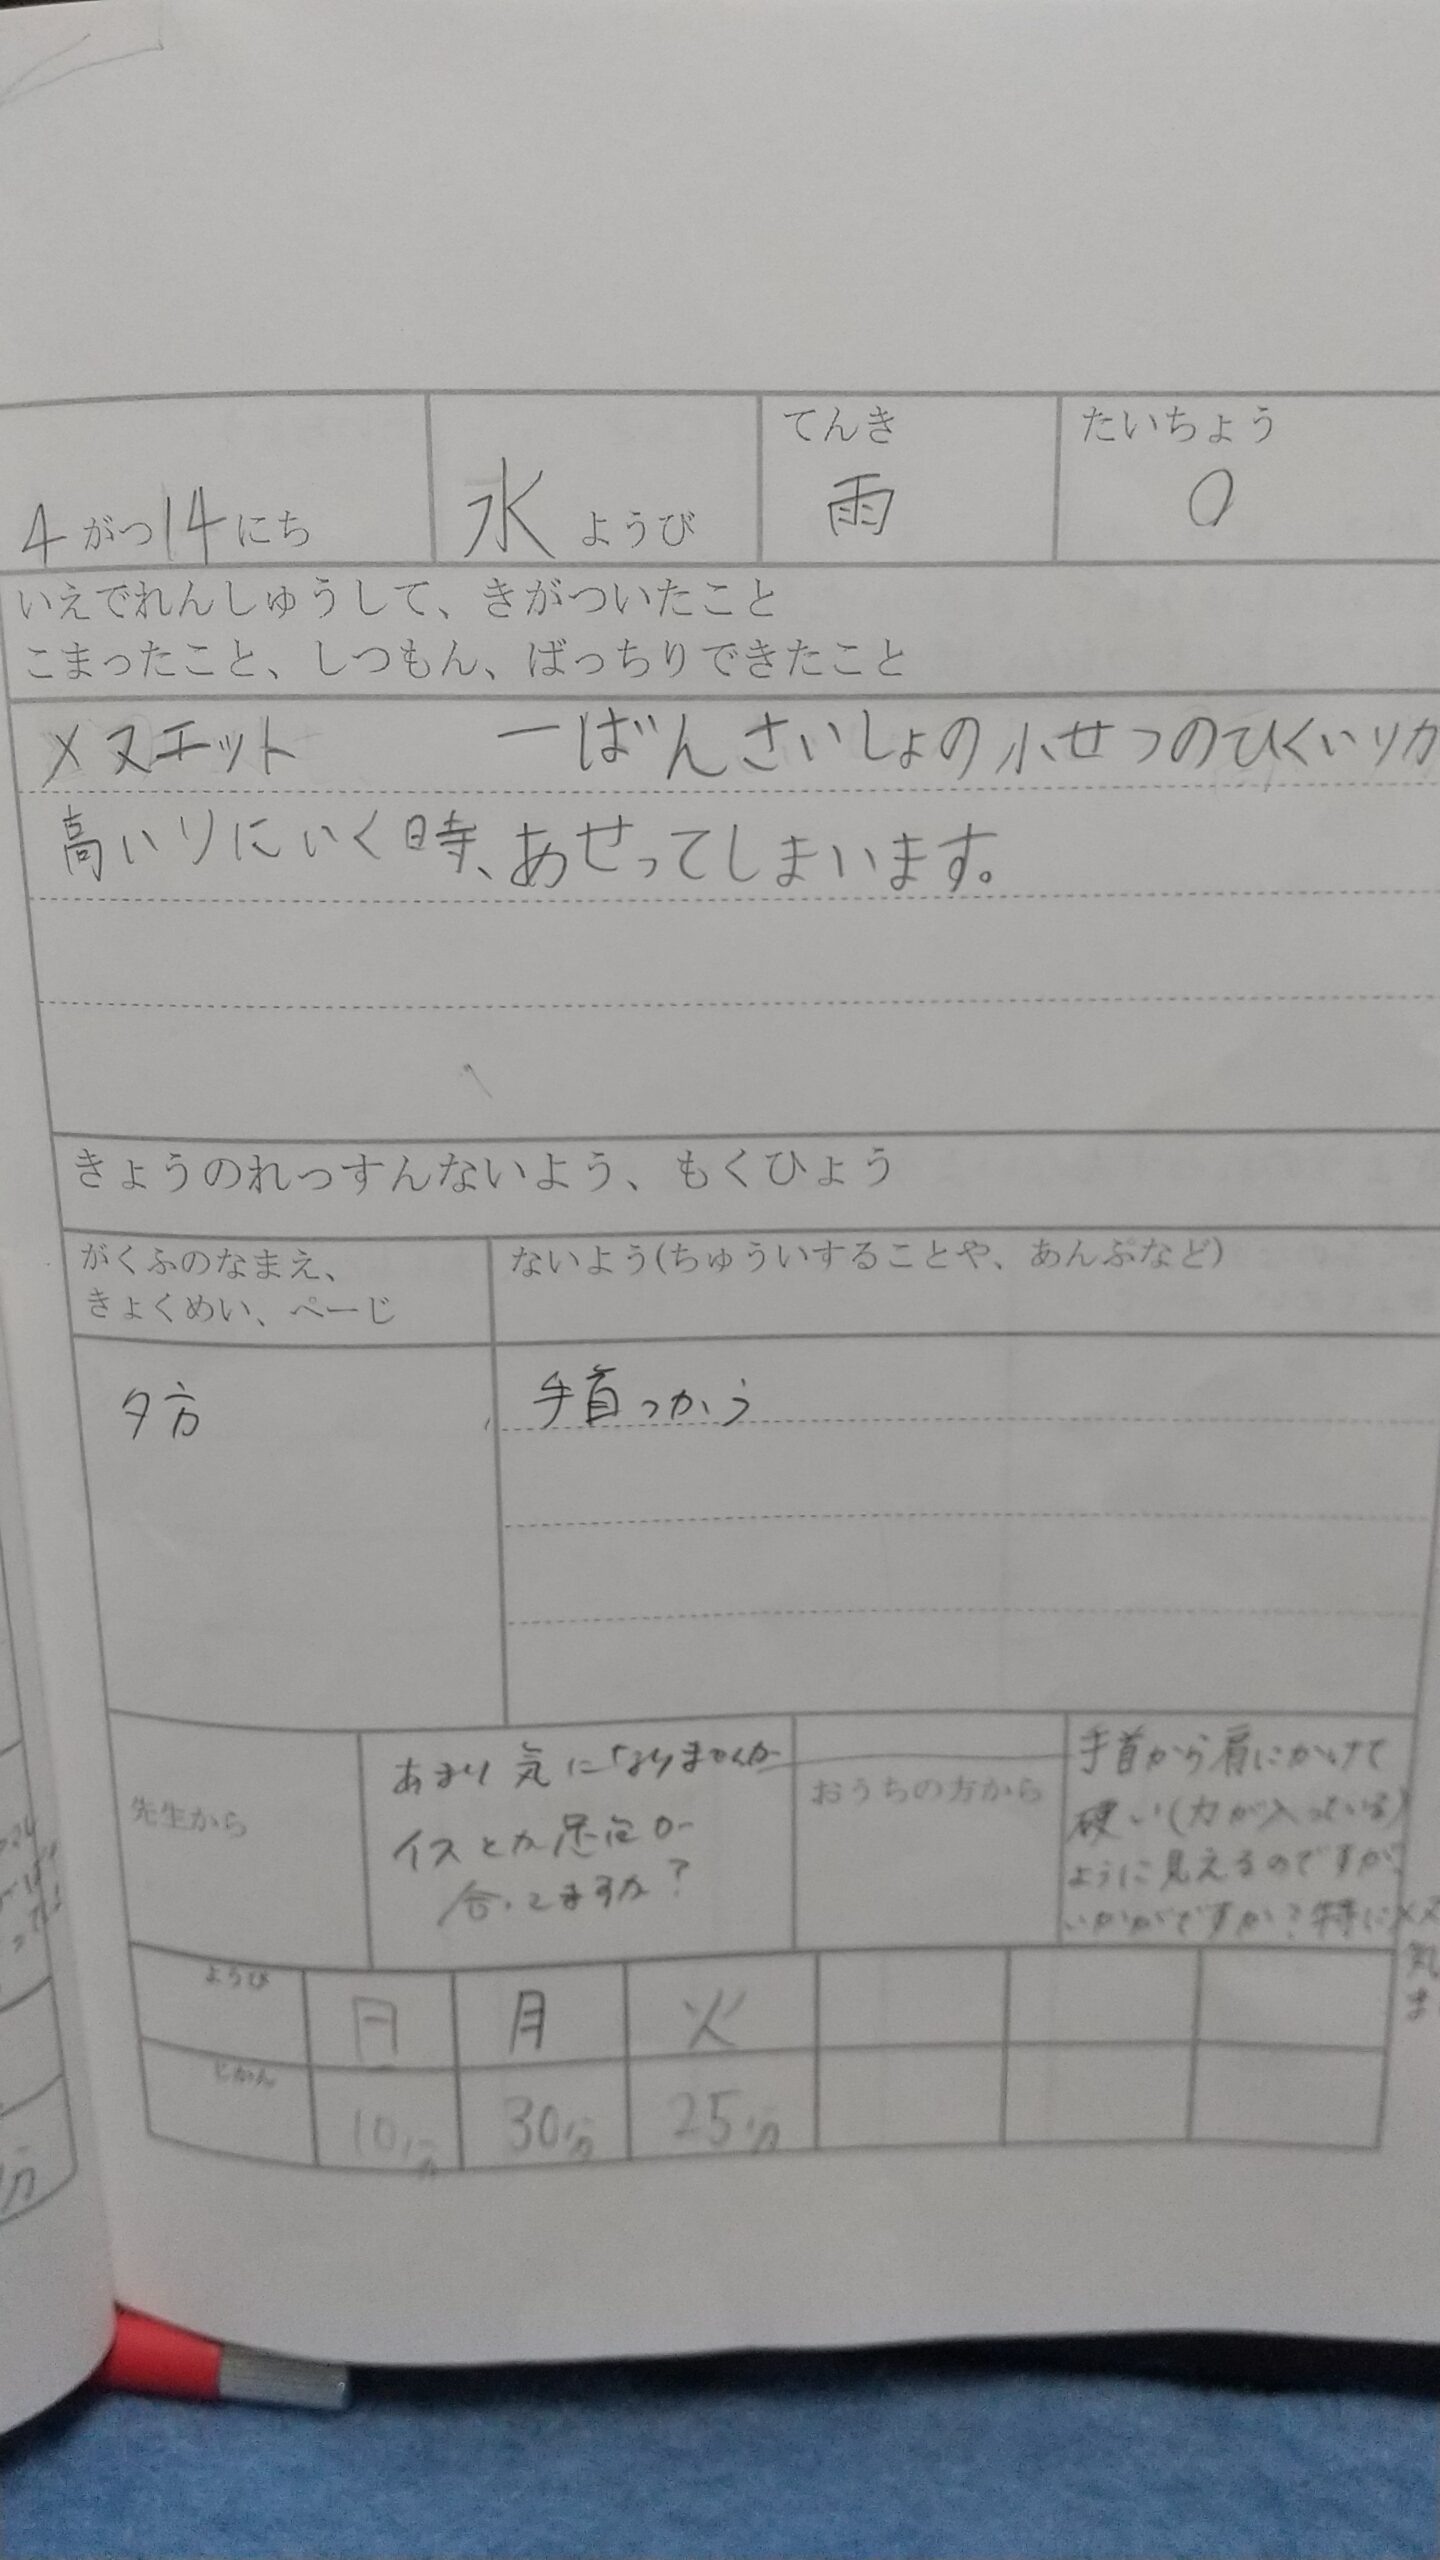 4がつ14にち 水ようび てんき 雨 たいちょう ○
いえでれんしゅうして、きがついたこと
こまったこと、しつもん、ばっちりできたこと
メヌエット 一ばんさいしょの小せつのひくいソか
高いソにいく時、あせってしまいます。
きょうのれっすんないよう、もくひょう
がくふのなまえ、
きょくめい、ぺーじ
ないよう(ちゅういすることや、あんぷなど)
夕方 手首つかう
先生から
あまり気になりませんが
イスとか足台が
合ってますか?
おうちの方から
手首から肩にかけて
硬い(力が入っている)
ように見えるのですが、
いかがですか?特にメヌ
気
ま
ようび 日 月 火
じかん 10分 30分 25分